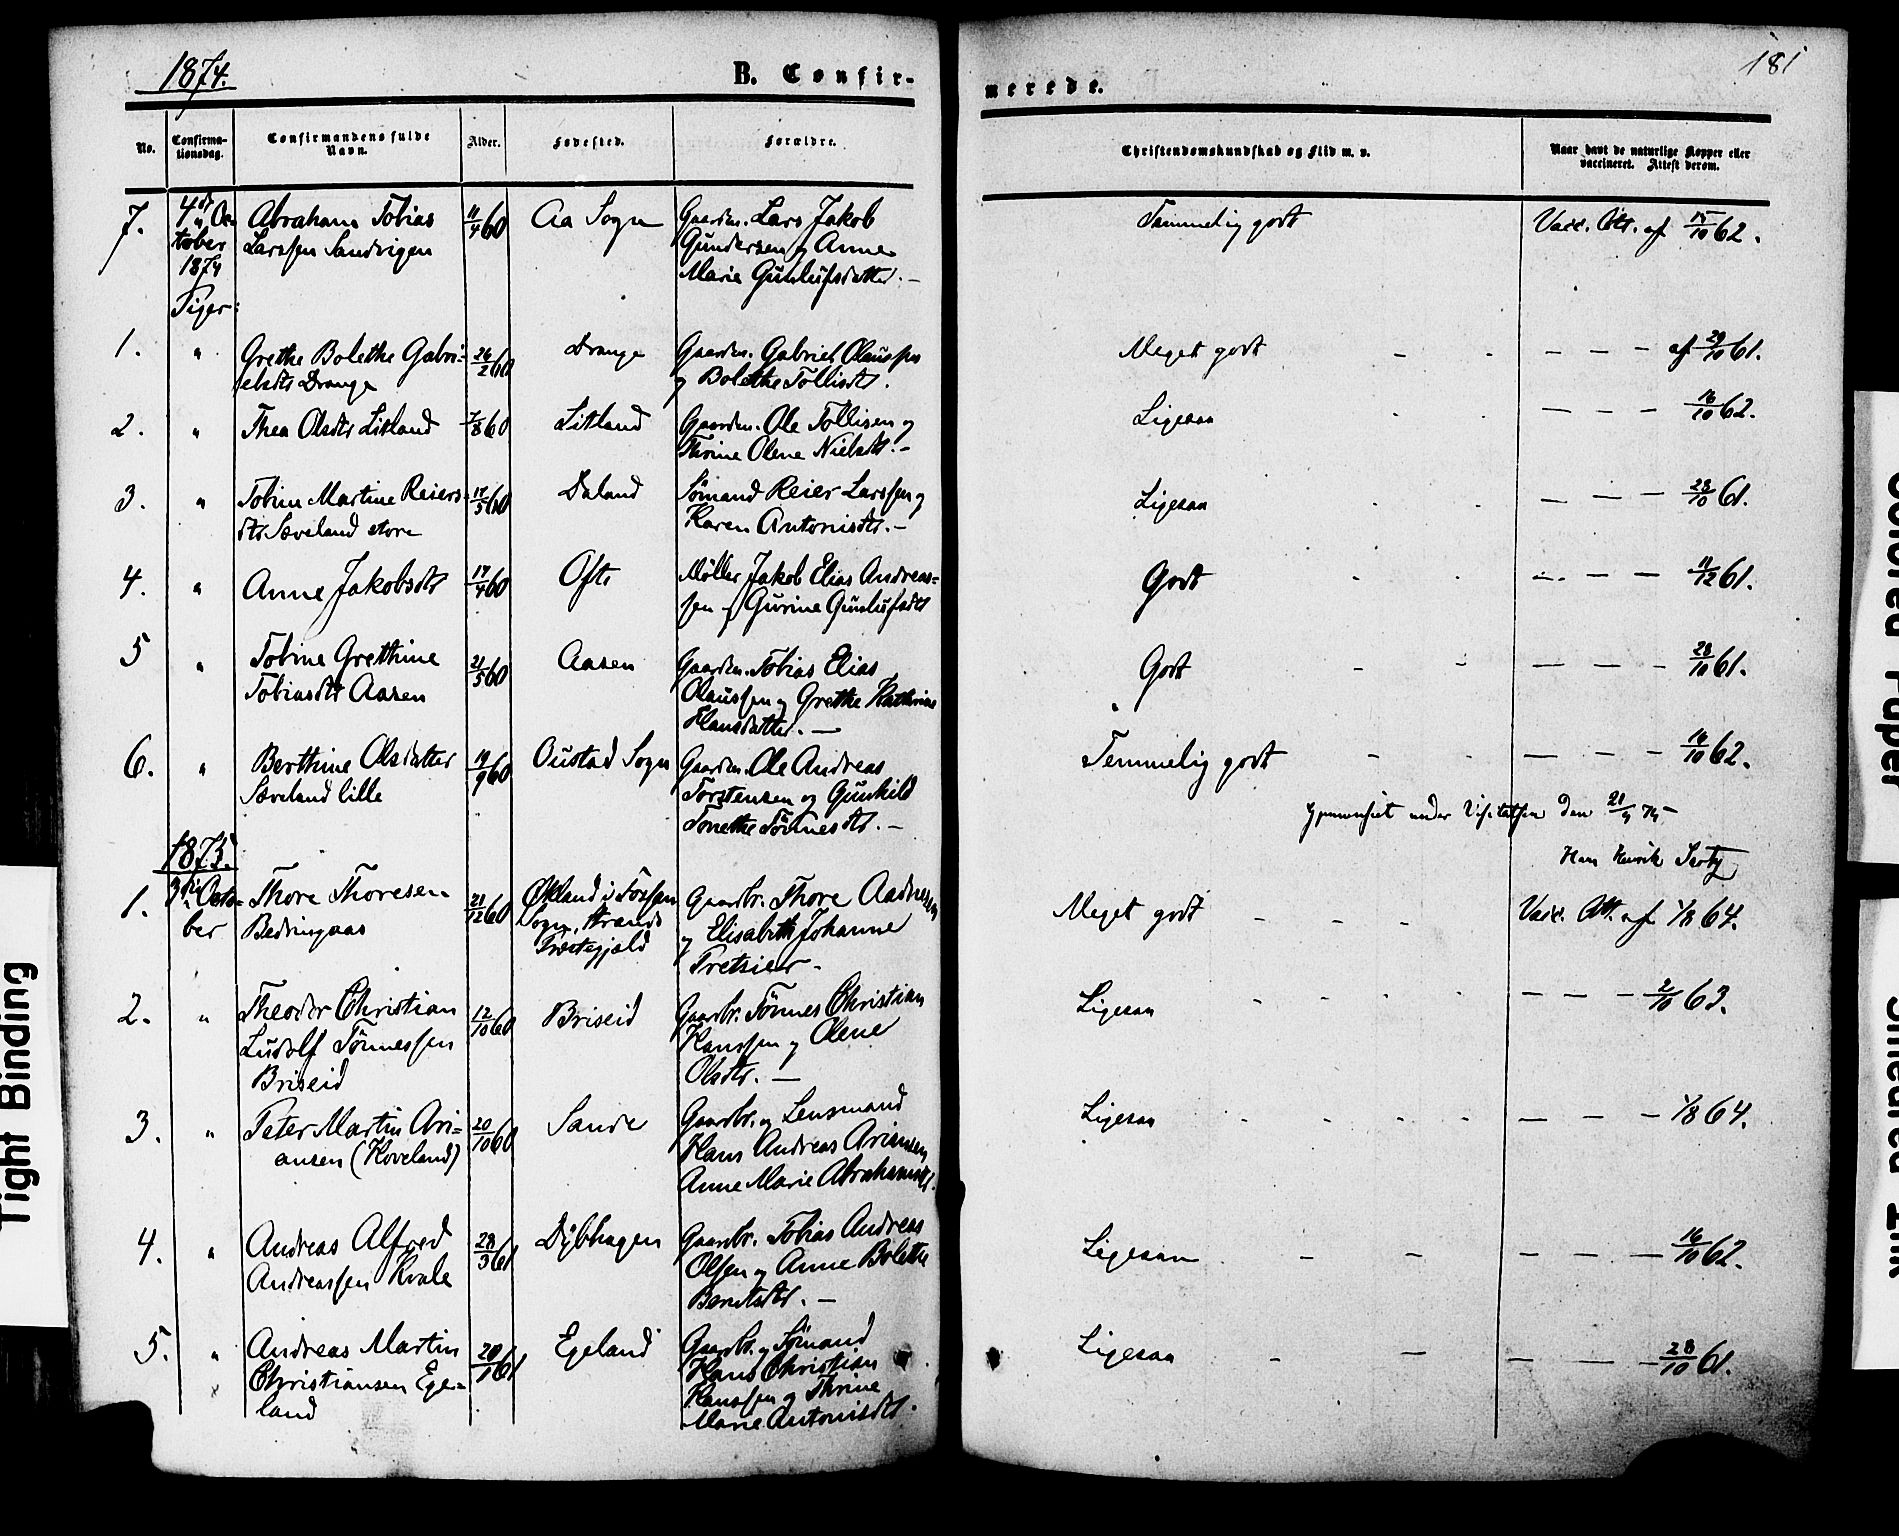 1874.
B. Confir-
merede.
181
No.
Confirma-
tionsdag.
Confirmandens fulde
Navn.
Alder.
Fødested.
Forældre.
Christendomskundskab og Flid m. v.
Naar havt de naturlige Kopper eller
vaccineret. Attest derom.
7. 4de Oc- Abraham Tobias 11/4 60 Aa Sogn Gaardm. Lars Jakob Temmelig godt Vacc. Att. af 15/10 62.
tober Larssen Sandvigen Gundersen og Anne
1874 Marie Gunlufsdatter. —
Piger:
1. " Grethe Bolethe Gabri- 26/2 60 Drange Gaardm. Gabriel Olaussen Meget godt - - — — — af 29/10 61.
elsdtr Drange og Bolethe Tollisdtr.
2. " Thea Olsdtr Litland 7/8 60 Litland Gaardm. Ole Tollisen og Ligesaa — — — 16/10 62.
Thrine Olene Nielsdtr. —
3. " Tobine Martine Reiers- 17/5 60 Daland Sømand Reier Larssen og Ligesaa — — — 28/10 61.
dtr. Sæveland store Karen Antonisdtr. —
4. " Anne Jakobsdtr 17/4 60 Ofte Møller Jakob Elias Andreas- Godt — — — 11/12 61.
sen og Gurine Gunlufsdtr
5 " Tobine Grethine 21/5 60 Aasen Gaardm. Tobias Elias Godt - - — — — 28/10 61.
Tobiasdtr Aasen Olaussen og Grethe Kathrine
Hansdatter. —
6. " Berthine Olsdatter 19/9 60 Oustad Sogn Gaardm. Ole Andreas Temmelig godt - - — — — 16/10 62.
Sæveland lille Torstensen og Gunhild
Tonethe Tønnesdtr. —
Gjennemseet under Visitatsen den 21/9 75
1875.
1. 3die Octo- Thore Thoresen 21/12 60 Økland i Fossan Gaardbr. Thore Aadnesen Meget godt - - - Vacc. Att. af 1/8 64.
ber Sogn, Strands og Elisabeth Johanne
Præstegjæld Tretsier -
2. " Theodor Christian 12/10 60 Briseid Gaardbr. Tønnes Christian Ligesaa - - - - — — — 2/10 63.
Ludolf Tønnessen Hanssen og Olene
Briseid Olsdtr. —
3. " Peter Martin Ari- 20/10 60 Sande Gaardbr. og Lensmand Ligesaa - - - - — — — 1/8 64.
ansen (Hoveland) Hans Andreas Ariansen
Anne Marie Abrahamsdtr.
4. " Andreas Alfred 28/3 61 Dybhagen Gaardbr. Tobias Andreas Ligesaa - - — — — 16/10 62.
Andreassen Kvale Olsen og Anne Bolethe
Berntsdtr. —
5. " Andreas Martin 20/1 61 Egeland Gaardbr. og Sømand Ligesaa - — — — — 28/10 61.
Christiansen Ege- Hans Christian
land Hanssen og Thrine
Marie Antonisdtr.
Tight Binding
Colored Paper
Smeared Ink